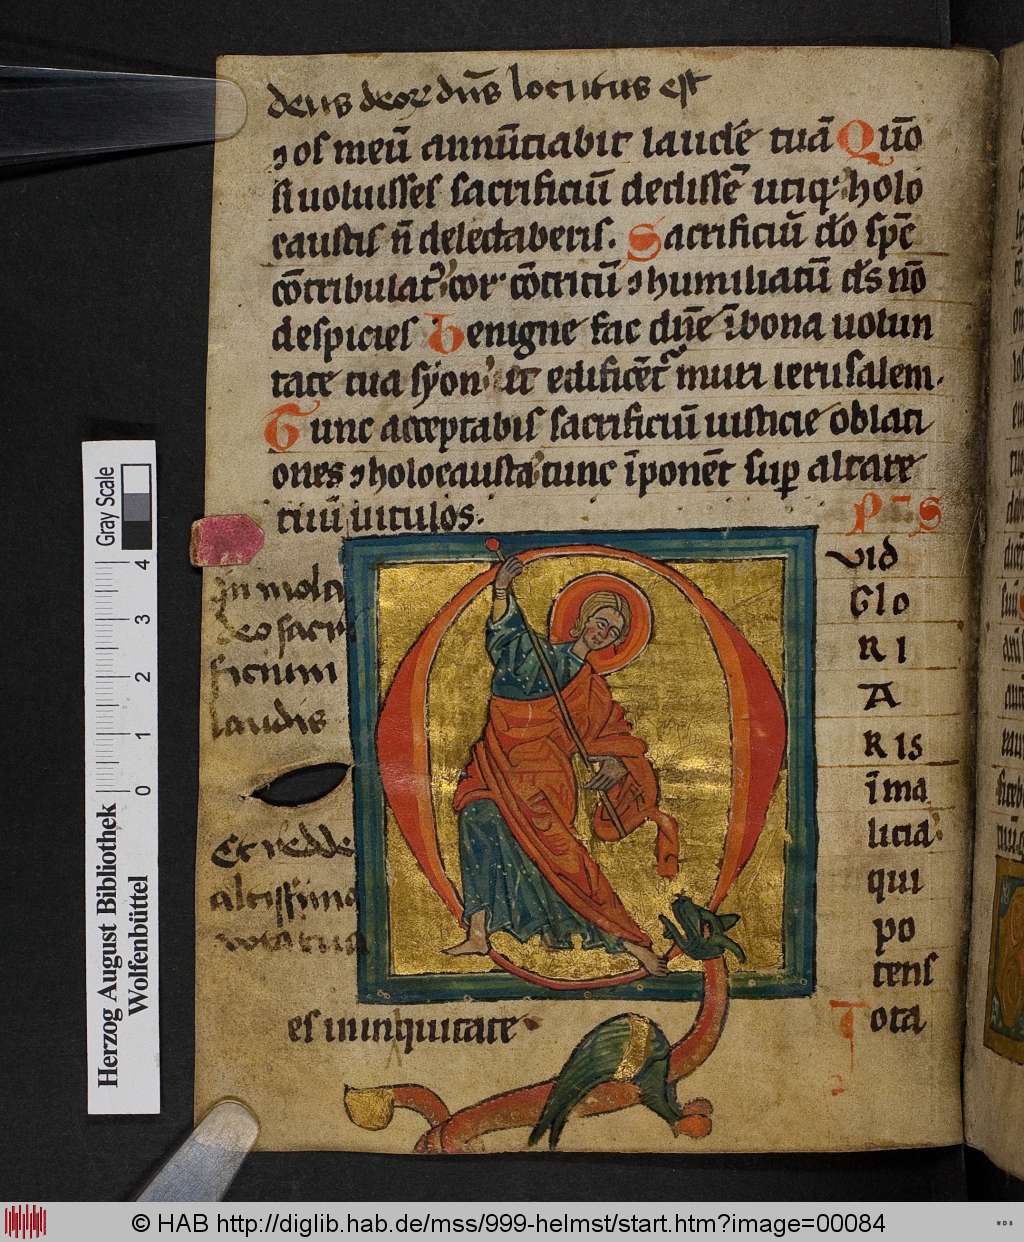 deus deor̄ dn̄s locutus est
⁊ os meū annūciabit laudē tuā Qm̄o
si uoluisses sacrificiū dedissē utiq; holo
caustis n̄ delectaberis. Sacrificiū dō spc̄
cōtribulat᷒ cor cōtritū ⁊ humiliatū ds̄ nō
despicies Benigne fac dn̄e ī bona uolun
tate tua syon ut edificēt᷑ muri ierusalem.
Tunc acceptabis sacrificiū iusticie oblati
ones ⁊ holocausta tunc īponēt sup̱ altare
tuū uitulos.
Ps̄
vid
Glo
RI
A
RIS
ī ma
licia
qui
po
tens
es in inquitate
Tota
Immola
deo sacri
ficium
laudis
Et redde
altissimo
vota tua
Gray Scale
4
3
2
1
0
Herzog August Bibliothek
Wolfenbüttel
© HAB http://diglib.hab.de/mss/999-helmst/start.htm?image=00084